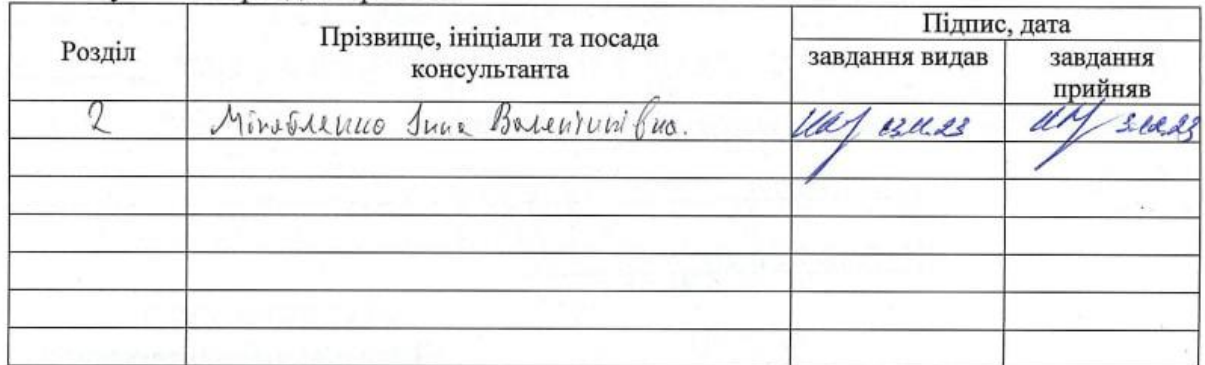 Розділ
Прізвище, ініціали та посада
консультанта
Підпис, дата
завдання видав
завдання
прийняв
2 Інна Валентинівна.